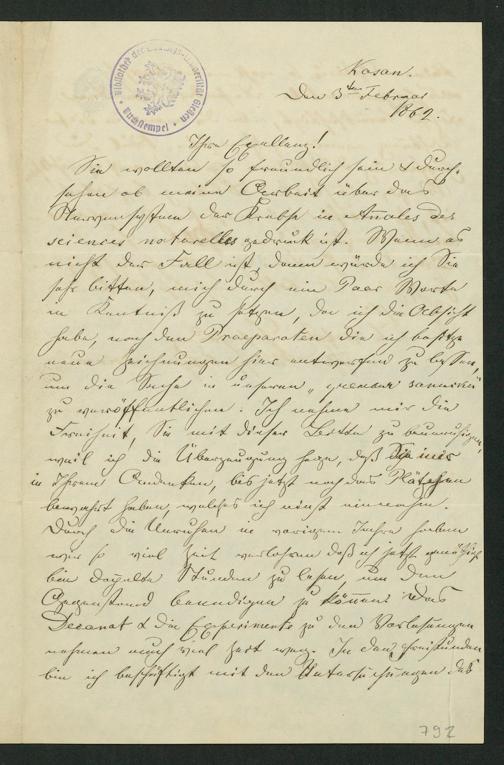 Kasan.
Den 3ten Februar
1862.
Ihre Exellenz!
Sie wollten so freundlich sein & durch-
sehen ob meine Arbeit über das
Nervensystem der Krebse in Anales des
sciences naturelles gedruckt ist. Wenn es
nicht der Fall ist, dann würde ich Sie
sehr bitten, mich durch ein Paar Worte
in Kentniß zu setzen, da ich die Absicht
habe, nach den Praeparaten die ich besitze
neue Zeichnungen hier entwerfen zu lassen,
um die Sache in unseren „ученыя записки"
zu veröffentlichen. Ich nehme mir die
Freiheit, Sie mit dieser Bitte zu beunruhigen,
weil ich die Überzeugung hege, daß Sie mir
in Ihrem Andenken, bis jetzt noch das Plätzchen
bewahrt haben, welches ich einst einnahm.
Durch die Unruhen im vorigen Jahre haben
wir so viel Zeit verlohren daß ich jetzt genöthigt
bin doppelte Stunden zu lesen, um den
Gegenstand beendigen zu können. Das
Decanat & die Experimente zu den Vorlesungen
nehmen auch viel Zeit weg. In den Freistunden
bin ich beschäftigt mit den Untersuchungen des
792
Bibliothek der Universität Giessen
Buchstempel